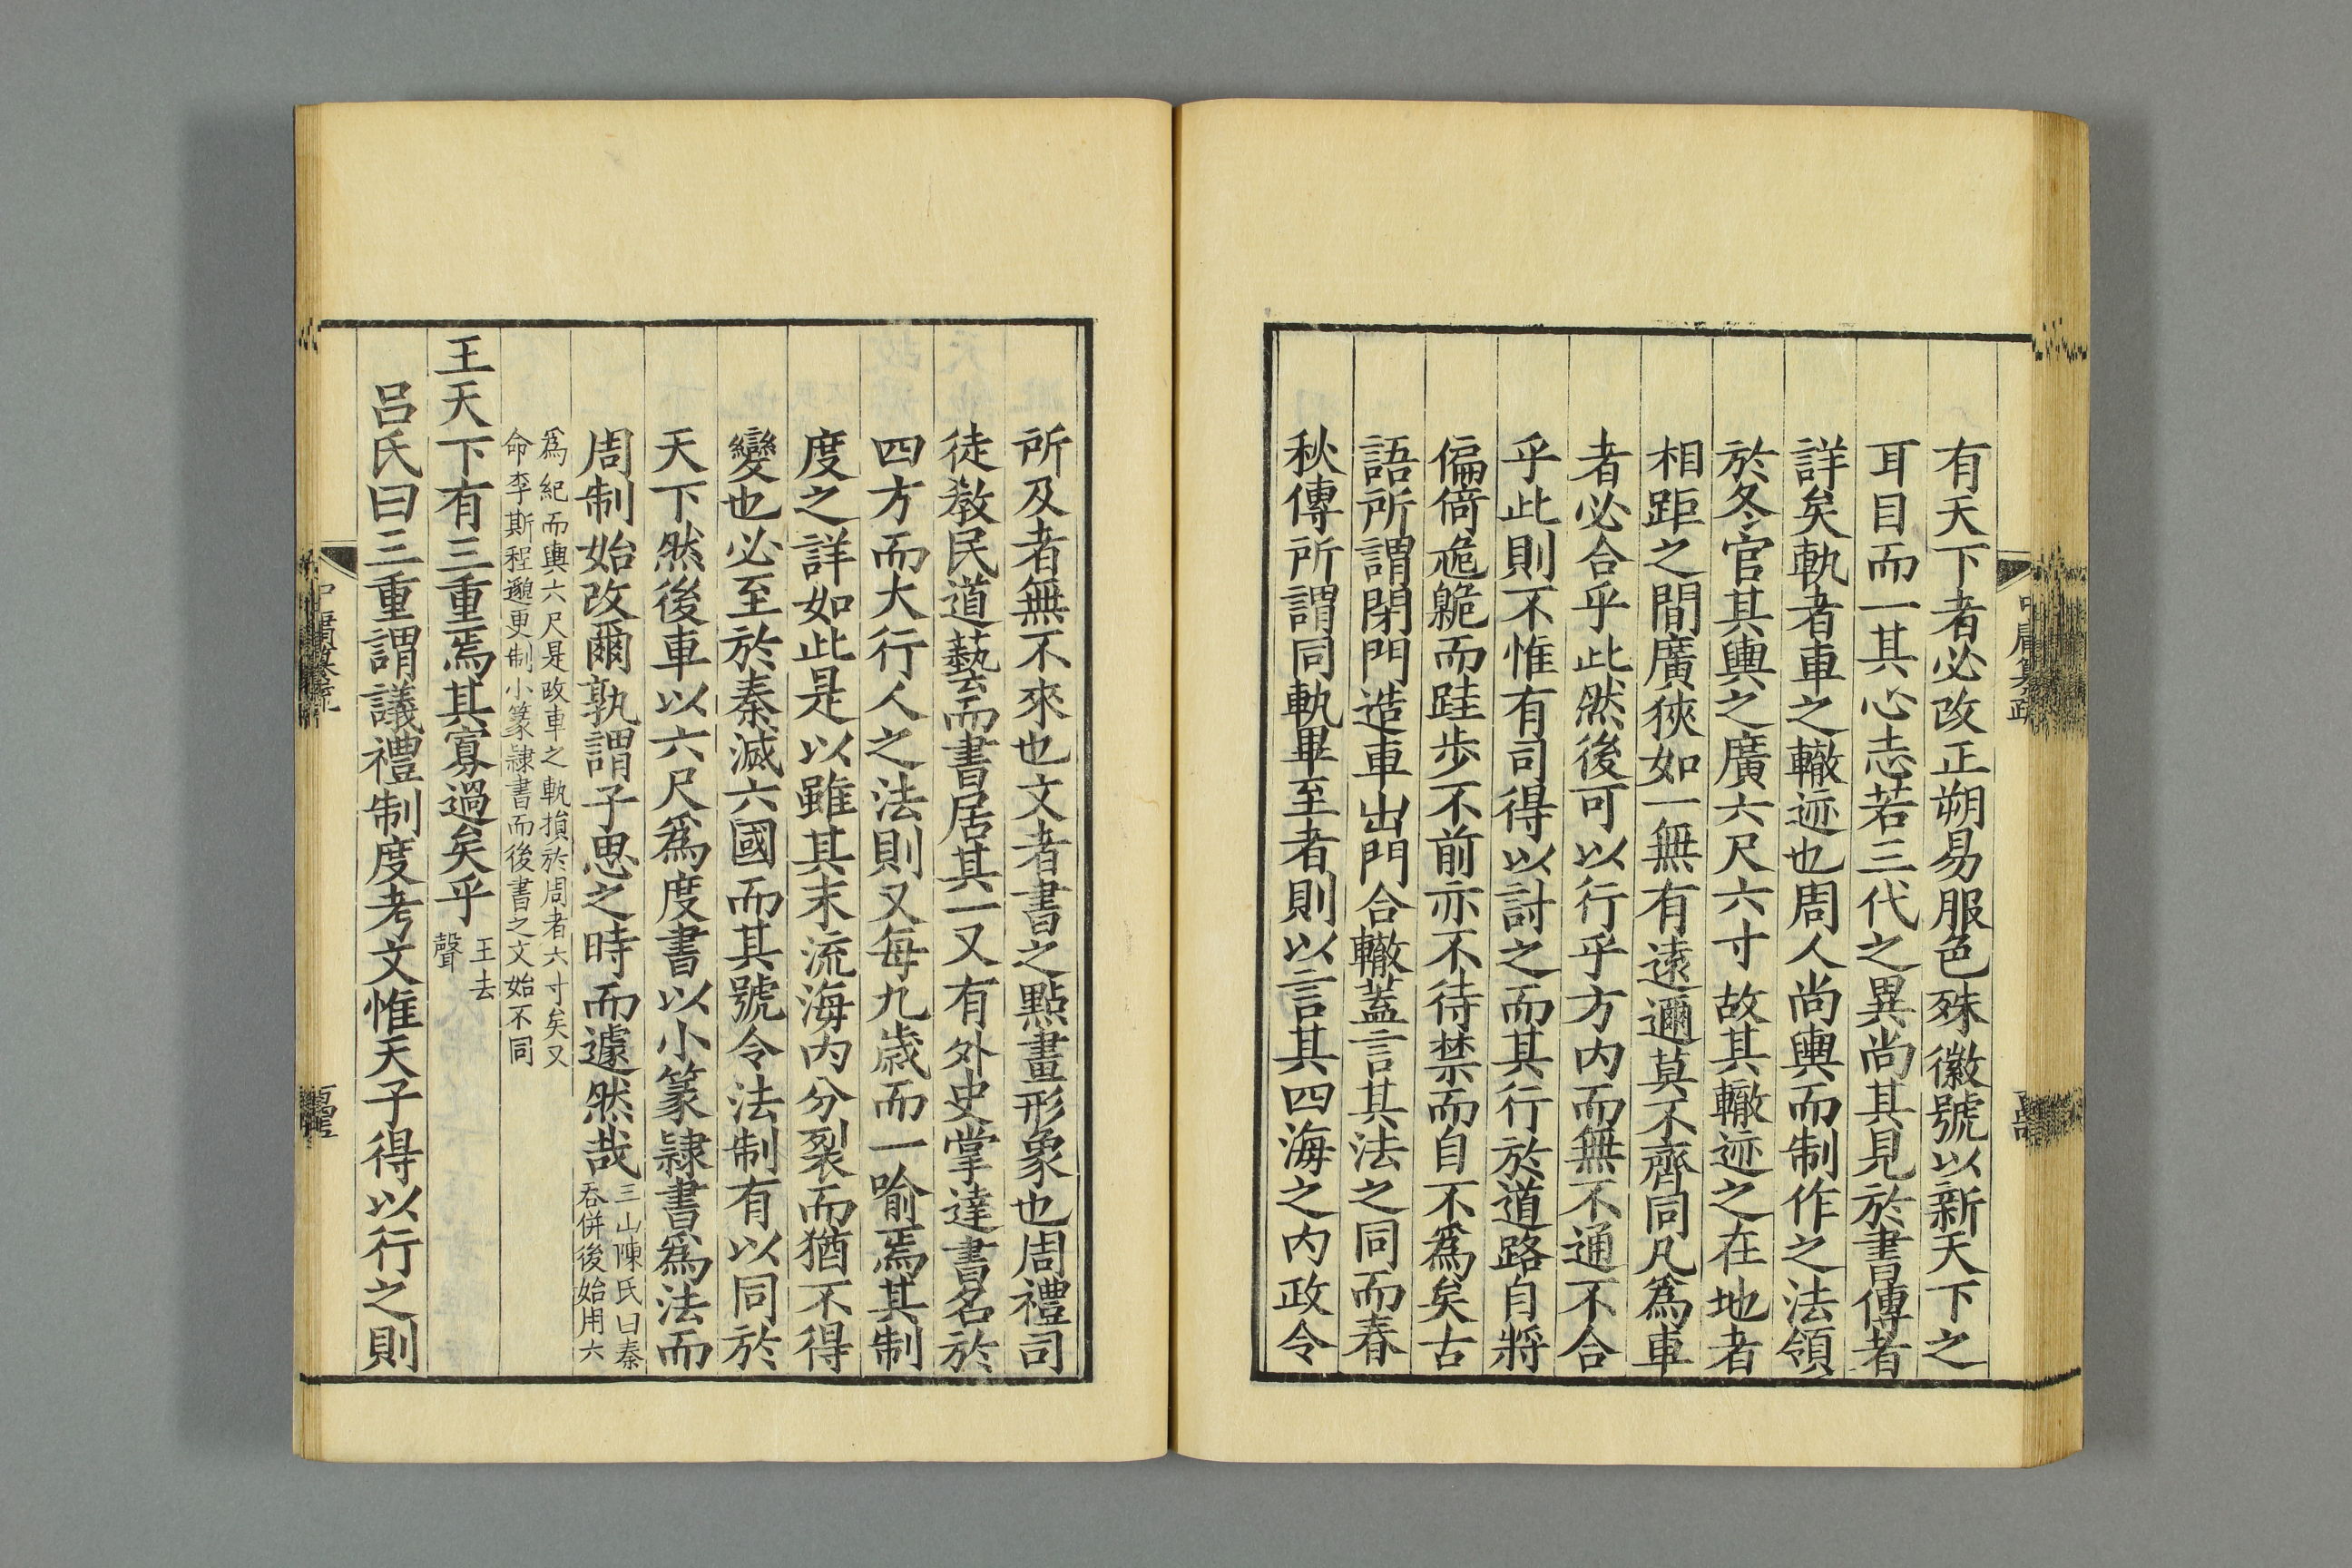 有天下者必改正朔易服色殊徽號以新天下之
耳目而一其心志若三代之異尚其見於書傳者
詳矣軌者車之轍迹也周人尚輿而制作之法領
於冬官其輿之廣六尺六寸故其轍迹之在地者
相距之間廣狹如一無有遠邇莫不齊同凡爲車
者必合乎此然後可以行乎方内而無不通不合
乎此則不惟有司得以討之而其行於道路自將
偏倚𡯓𡰈而跬歩不前亦不待禁而自不爲矣古
語所謂閉門造車出門合轍蓋言其法之同而春
秋傳所謂同軌畢至者則以言其四海之内政令
所及者無不來也文者書之點畫形象也周禮司
徒敎民道藝而書居其一又有外史掌達書名於
四方而大行人之法則又每九歳而一喻焉其制
度之詳如此是以雖其末流海内分裂而猶不得
變也必至於秦滅六國而其號令法制有以同於
天下然後車以六尺爲度書以小篆隷書爲法而
周制始改爾孰謂子思之時而遽然哉
三山陳氏曰秦
吞併後始用六
爲紀而輿六尺是改車之軌損於周者六寸矣又
命李斯程邈更制小篆隷書而後書之文始不同
王天下有三重焉其寡過矣乎
王去
聲
呂氏曰三重謂議禮制度考文惟天子得以行之則